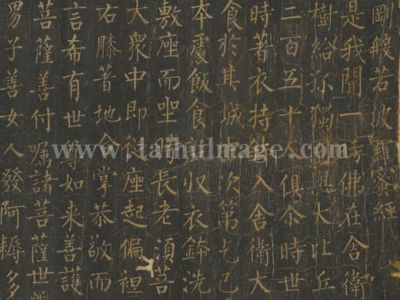 剛般若波羅蜜經
是我聞一時佛在舍衛
樹給孤獨與大比丘
二百五十俱尒時世
時著衣持鉢入舍衛大
食於其城次第乞已
本處飯食收衣鉢洗
敷座而坐長老須菩
大衆中即從座起偏袒
右膝著地合掌恭敬而
言希有世尊如來善護
菩薩善付囑諸菩薩世
男子善女人發阿耨多
www.taihuImage.com